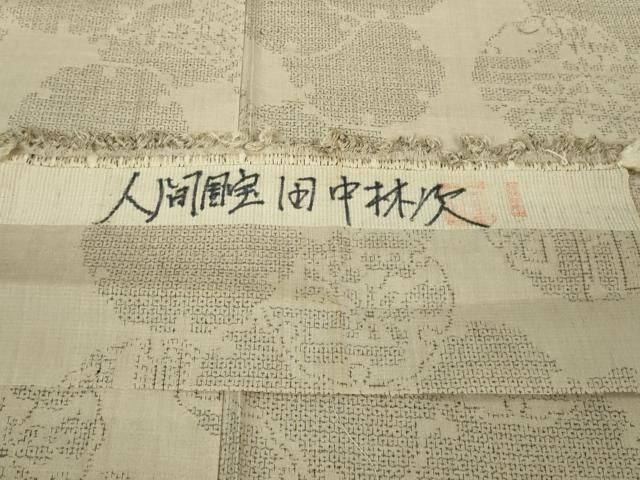 人間国宝 田中林次